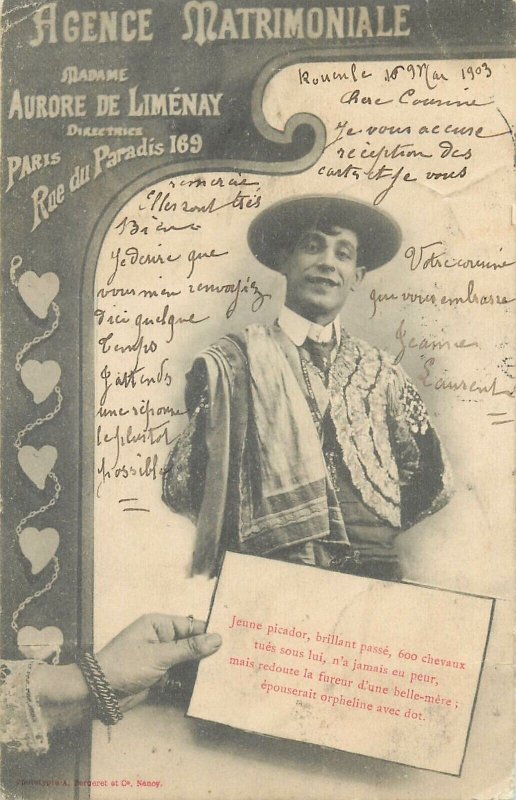 AGENCE MATRIMONIALE
MADAME
AURORE DE LIMÉNAY
DIRECTRICE
PARIS
Rue du Paradis 169
9 Mai 1903
Chere Cousine
Je vous accuse
réception des
cartes et Je vous
remercie
Elles sont très
Bien
Je desire que
vous men renvoyiez
dici quelque
temps
Jattends
une réponse
le plutot
possible
Votre cousine
que vous embrasse
Jeanne
Laurent
Jeune picador, brillant passé, 600 chevaux
tués sous lui, n'a jamais eu peur,
mais redoute la fureur d'une belle-mère ;
épouserait orpheline avec dot.
Phototypie A. Bergeret et Cie, Nancy.